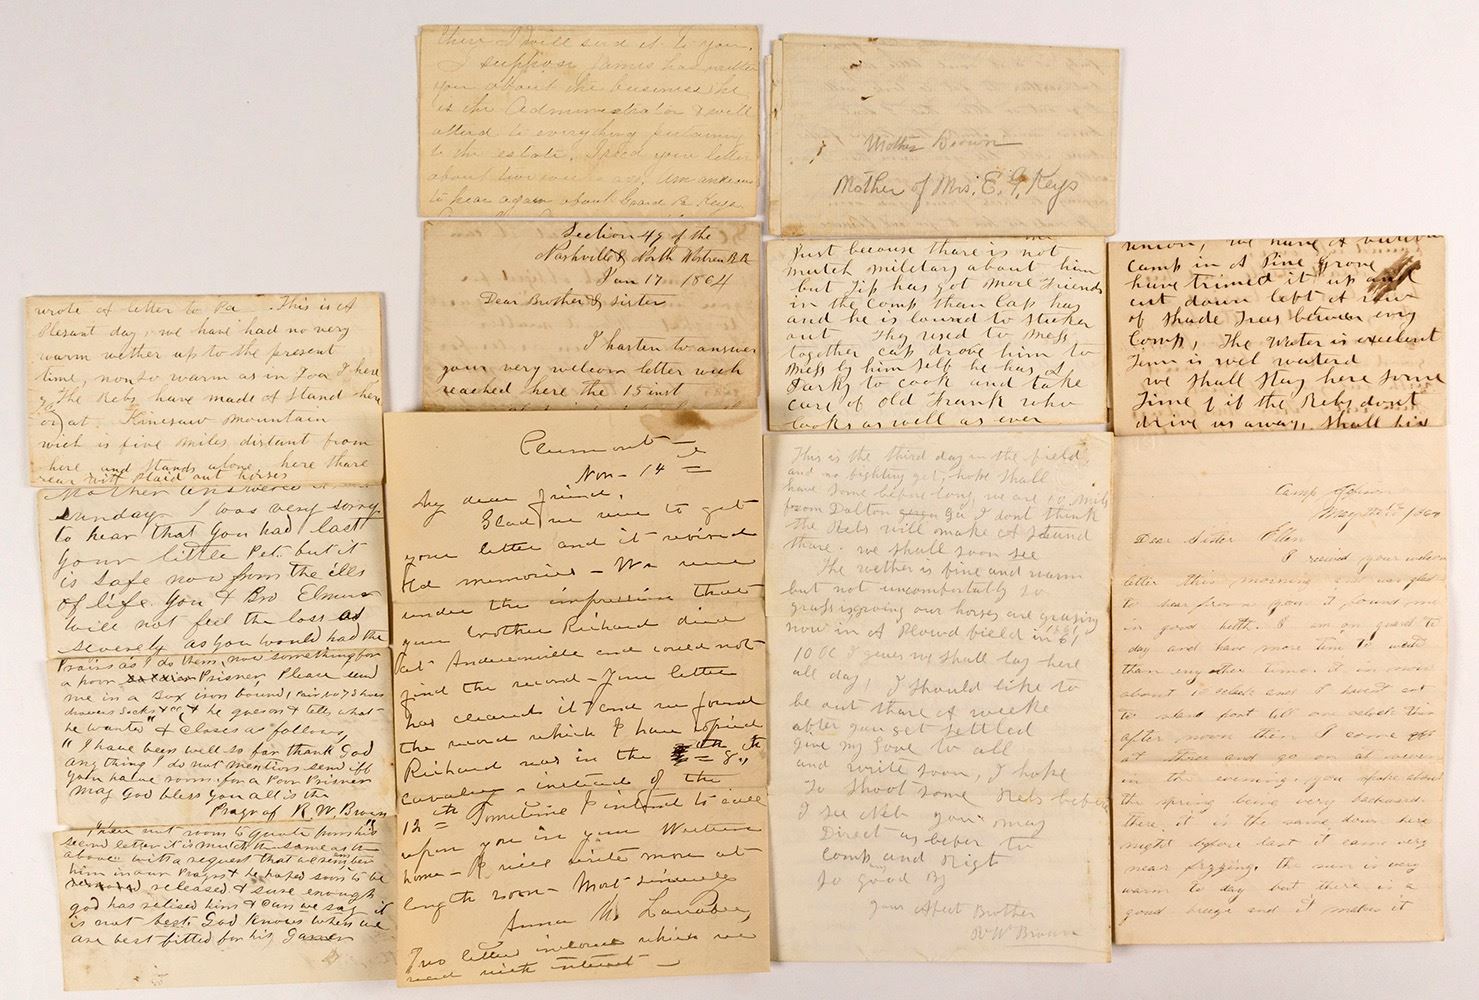 there I will send it to you,
I suppose James has written
you about the business, he
is the Administrator & will
attend to everything pertaining
to the estate. I rec'd your letter
about two
to hear again about Grand Pa Keys
Mother Brown
Mother of Mrs. E. G. Keys
Section 49 of the
Nashville & North Western RR
Jan 17 1864
Dear Brother & Sister
I hasten to answer
your very welcom letter wich
reached here the 15 inst
Just because there is not
mutch military about him
but Tip has got more Friends
in the Comp than Cap has
and he is bound to sticker
out They used to mess
together cap drove him to
mess by him self he has a
Darky to cook and take
care of old Frank who
looks as well as ever
union, we have a
Camp in A Pine Grove
have trimed it up and
cut down left A row
of shade Trees between evry
Comp, The Water is excelent
Tenn is wel waterd
we shall stay here some
Time & if the Rebs dont
drive us away, shall
wrote A letter to Pa This is A
Plesant day, we have had no very
warm wether up to the present
time, non so warm as in Ioa I here
The Rebs have made A Stand here
or at Kinesaw Mountain
wich is five miles distant from
here and stands alone, here thare
rear with Plaid out horses
Mother answered it
sunday I was very sorry
to hear that you had lost
your little Pet. but it
is safe now from the ills
of life you & Bro Elmer
will not feel the loss as
severely as you would had the
Prais as I do them, now something for
a poor Prisner Please send
me in a Box iron bound, Pair No 7 Shoes
drawers socks & he goes on & tells what
he wants & closes as follows,
"I have been well so far thank God
any thing I do not mention send iff
you have room for a Poor Prisner
May God bless you all is the
Prayr of R. W. Brown
I have not room to quote from his
secund letter it is mutch the same as the
above with a request that we remember
him in our Prayrs & he hoped soon to be
released & sure enough
god has relised him & can we say it
is not best. God knows when we
are best fitted for his
Clermont
Nov- 14th
My dear friend,
Glad we were to get
your letter and it revived
old memories - We were
under the impression that
your brother Richard died
at Andersonville and could not
find the record - Your letter
has cleared it and we found
the record which I have copied
Richard was in the 8th
Cavalry - instead of the
12th Sometime I intend to call
upon you in your Western
home - & will write more at
length soon - Most sincerely
Anna M.
Two letters inclosed which we
read with interest -
This is the third day in the field,
and no fighting yet, hope shall
have some before long we are 10 mils
from Dalton Ga I dont think
the Rebs will make A Stand
thare. we shall soon see
The wether is fine and warm
but not uncomfortably so
grass is groing our horses are grazing
now in A Plowd field
10 OC I guess we shall lay here
all day, I should like to
be out thare A weeke
after you get settled
give my Love to all
and write soon, I hope
to shoot some Rebs before
I see Neb you may
Direct as before to
Comp and Rigt
So good By
Your Affect Brother
R W Brown
Camp
May 1864
Dear Sister Ellen
I received your welcom
letter this morning and was glad
to hear from you it found me
in good helth. I am on guard to
day and have more time to write
than eny other time. it is now
about 12 oclock and I havent got
to stand post till one oclock this
after noon then I come off
at three and go on at seven
in the evening, you spoke about
the spring being very backward
there, it is the same down here
night before last it came very
near frezing. the sun is very
warm to day but there is a
good breeze and it makes it